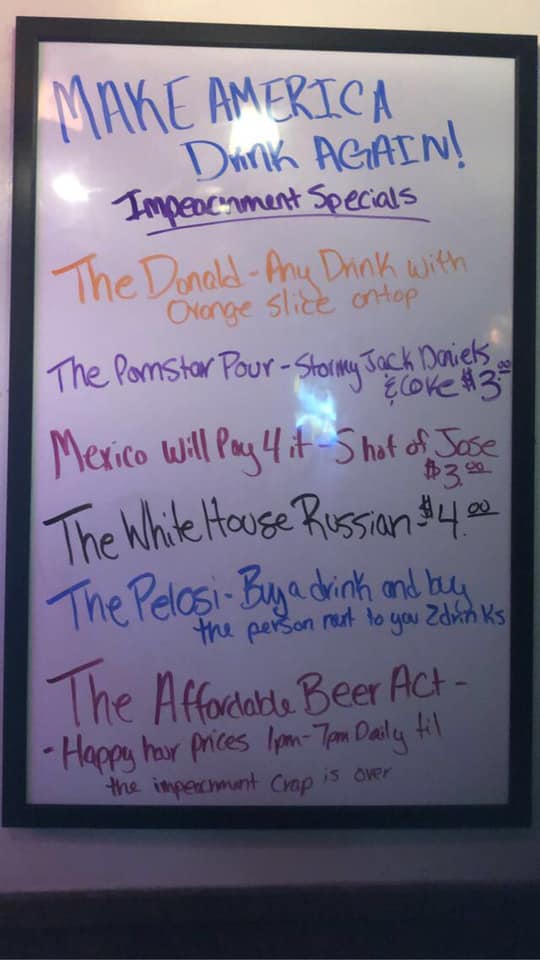 MAKE AMERICA
Drink AGAIN!
Impeachment Specials
The Donald - Any Drink with
Orange slice ontop
The Pornstar Pour - Stormy Jack Daniels
& Coke $3.00
Mexico Will Pay 4 it - Shot of Jose
$3.00
The White House Russian $4.00
The Pelosi - Buy a drink and buy
the person next to you 2 drinks
The Affordable Beer Act -
- Happy hour prices 1pm-7pm Daily til
the impeachment crap is over